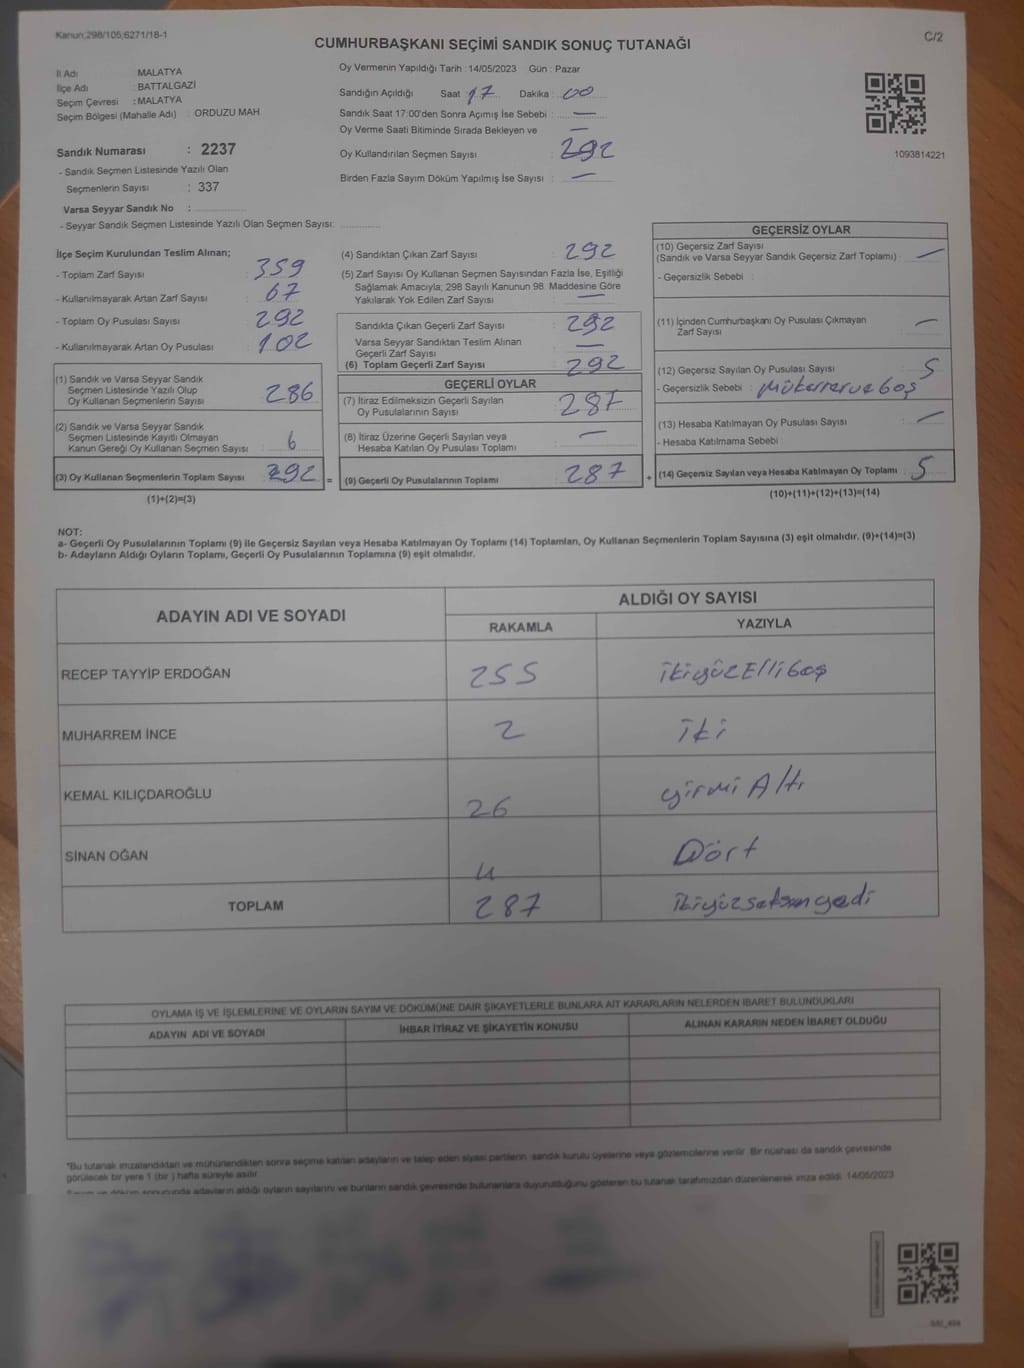 Kanun;298/105;6271/18-1
C/2
CUMHURBAŞKANI SEÇİMİ SANDIK SONUÇ TUTANAĞI
İl Adı : MALATYA
İlçe Adı : BATTALGAZİ
Seçim Çevresi : MALATYA
Seçim Bölgesi (Mahalle Adı) : ORDUZU MAH.
Sandık Numarası : 2237
- Sandık Seçmen Listesinde Yazılı Olan
Seçmenlerin Sayısı : 337
Varsa Seyyar Sandık No :
- Seyyar Sandık Seçmen Listesinde Yazılı Olan Seçmen Sayısı:
Oy Vermenin Yapıldığı Tarih : 14/05/2023 Gün : Pazar
Sandığın Açıldığı Saat 17 Dakika : 00
Sandık Saat 17:00'den Sonra Açımış İse Sebebi : —
Oy Verme Saati Bitiminde Sırada Bekleyen ve —
Oy Kullandırılan Seçmen Sayısı : 292
Birden Fazla Sayım Döküm Yapılmış İse Sayısı : —
1093814221
İlçe Seçim Kurulundan Teslim Alınan;
- Toplam Zarf Sayısı : 359
- Kullanılmayarak Artan Zarf Sayısı : 67
- Toplam Oy Pusulası Sayısı : 292
- Kullanılmayarak Artan Oy Pusulası : 102
(1) Sandık ve Varsa Seyyar Sandık
Seçmen Listesinde Yazılı Olup
Oy Kullanan Seçmenlerin Sayısı : 286
(2) Sandık ve Varsa Seyyar Sandık
Seçmen Listesinde Kayıtlı Olmayan
Kanun Gereği Oy Kullanan Seçmen Sayısı : 6
(3) Oy Kullanan Seçmenlerin Toplam Sayısı : 292
(1)+(2)=(3)
(4) Sandıktan Çıkan Zarf Sayısı : 292
(5) Zarf Sayısı Oy Kullanan Seçmen Sayısından Fazla İse, Eşitliği
Sağlamak Amacıyla; 298 Sayılı Kanunun 98. Maddesine Göre
Yakılarak Yok Edilen Zarf Sayısı : —
Sandıkta Çıkan Geçerli Zarf Sayısı : 292
Varsa Seyyar Sandıktan Teslim Alınan
Geçerli Zarf Sayısı : —
(6) Toplam Geçerli Zarf Sayısı : 292
GEÇERLİ OYLAR
(7) İtiraz Edilmeksizin Geçerli Sayılan
Oy Pusulalarının Sayısı : 287
(8) İtiraz Üzerine Geçerli Sayılan veya
Hesaba Katılan Oy Pusulası Toplamı : —
= (9) Geçerli Oy Pusulalarının Toplamı : 287
GEÇERSİZ OYLAR
(10) Geçersiz Zarf Sayısı
(Sandık ve Varsa Seyyar Sandık Geçersiz Zarf Toplamı) : —
- Geçersizlik Sebebi :
(11) İçinden Cumhurbaşkanı Oy Pusulası Çıkmayan
Zarf Sayısı : —
(12) Geçersiz Sayılan Oy Pusulası Sayısı : 5
- Geçersizlik Sebebi : Mükerrer ve boş
(13) Hesaba Katılmayan Oy Pusulası Sayısı : —
- Hesaba Katılmama Sebebi :
+ (14) Geçersiz Sayılan veya Hesaba Katılmayan Oy Toplamı : 5
(10)+(11)+(12)+(13)=(14)
NOT:
a- Geçerli Oy Pusulalarının Toplamı (9) ile Geçersiz Sayılan veya Hesaba Katılmayan Oy Toplamı (14) Toplamları, Oy Kullanan Seçmenlerin Toplam Sayısına (3) eşit olmalıdır. (9)+(14)=(3)
b- Adayların Aldığı Oyların Toplamı, Geçerli Oy Pusulalarının Toplamına (9) eşit olmalıdır.
ADAYIN ADI VE SOYADI
ALDIĞI OY SAYISI
RAKAMLA YAZIYLA
RECEP TAYYİP ERDOĞAN 255 ikiyüzElli beş
MUHARREM İNCE 2 iki
KEMAL KILIÇDAROĞLU 26 yirmi Altı
SİNAN OĞAN 4 Dört
TOPLAM 287 ikiyüzseksenyedi
OYLAMA İŞ VE İŞLEMLERİNE VE OYLARIN SAYIM VE DÖKÜMÜNE DAİR ŞİKAYETLERLE BUNLARA AİT KARARLARIN NELERDEN İBARET BULUNDUKLARI
ADAYIN ADI VE SOYADI İHBAR İTİRAZ VE ŞİKAYETİN KONUSU ALINAN KARARIN NEDEN İBARET OLDUĞU
*Bu tutanak imzalandıktan ve mühürlendikten sonra seçime katılan adayların ve talep eden siyasi partilerin sandık kurulu üyelerine veya gözlemcilerine verilir. Bir nüshası da sandık çevresinde
görülecek bir yere 1 (bir) hafta süreyle asılır.
adayların aldığı oyların sayılarını ve bunların sandık çevresinde bulunanlara duyurulduğunu gösteren bu tutanak tarafımızdan düzenlenerek imza edildi. 14/05/2023